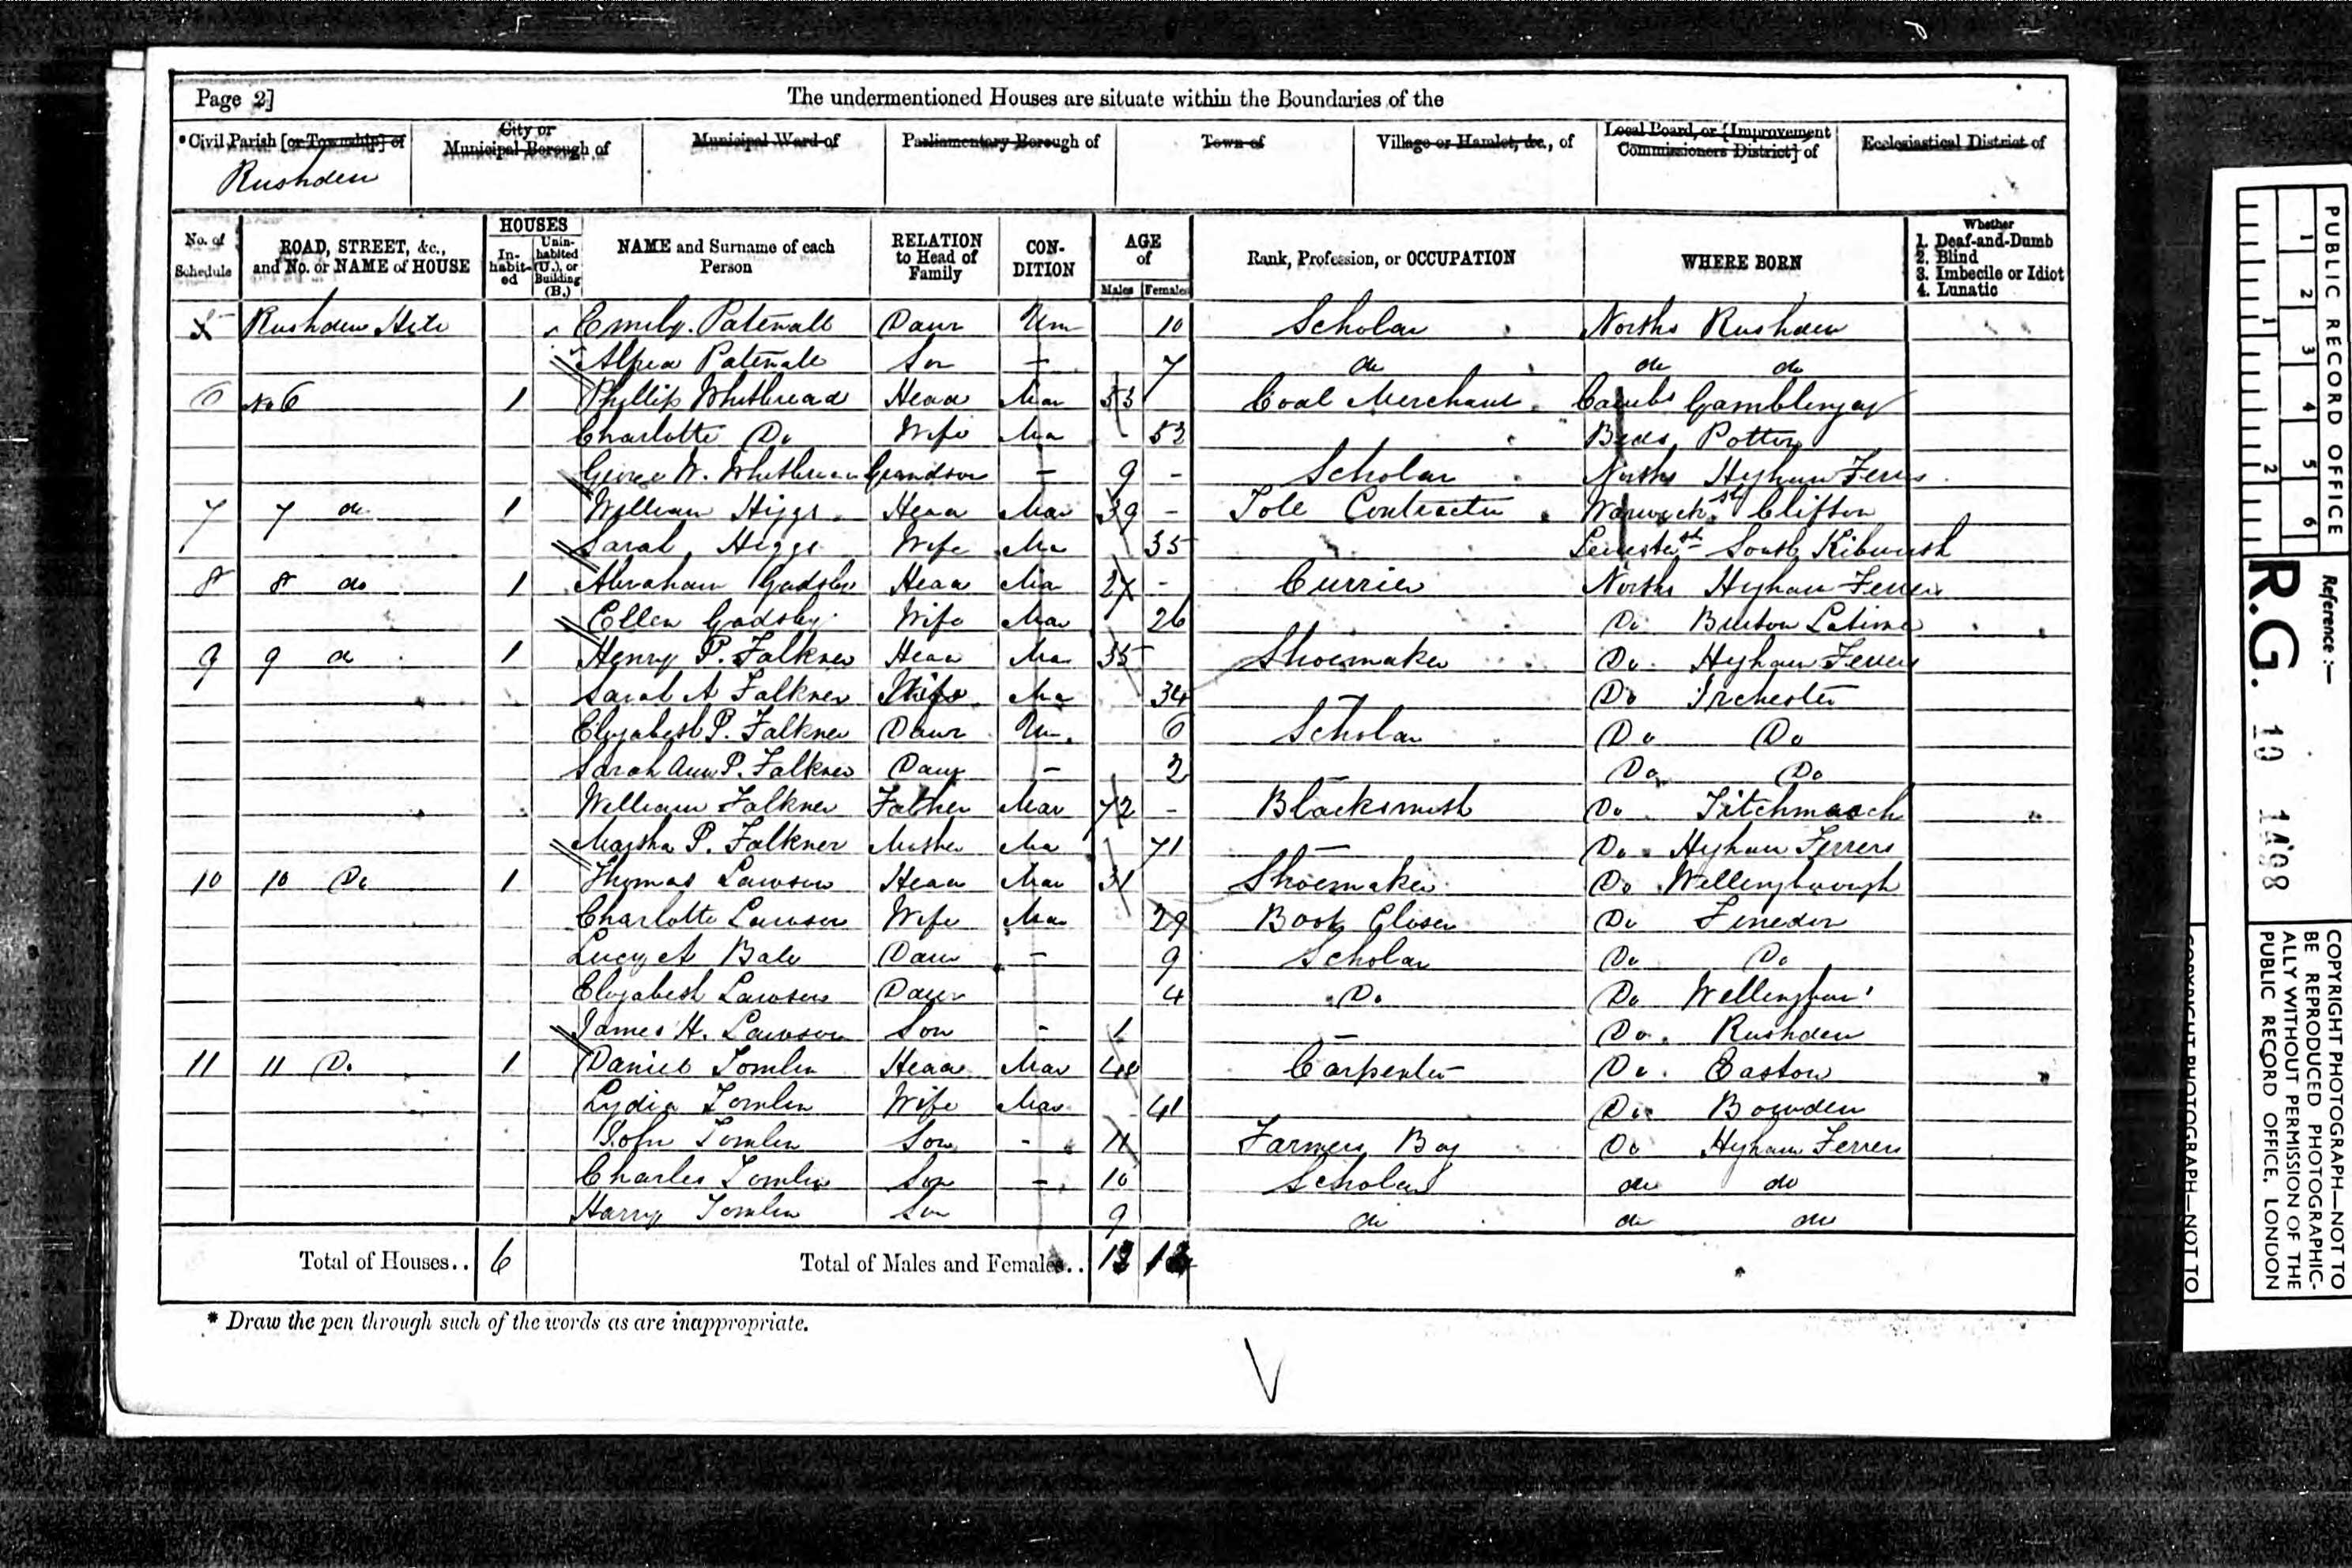 Page 2]
The undermentioned Houses are situate within the Boundaries of the
*Civil Parish [or Township] of
City or Municipal Borough of
Municipal Ward of
Parliamentary Borough of
Town of
Village or Hamlet, &c., of
Local Board, or [Improvement Commissioners District] of
Ecclesiastical District of
Rushden
No. of Schedule
ROAD, STREET, &c., and No. or NAME of HOUSE
HOUSES
In-habit-ed
Unin-habited (U.), or Building (B.)
NAME and Surname of each Person
RELATION to Head of Family
CON-DITION
AGE of
Males Females
Rank, Profession, or OCCUPATION
WHERE BORN
Whether
1. Deaf-and-Dumb
2. Blind
3. Imbecile or Idiot
4. Lunatic
5 Rushden Emily. Patenall Daur Un 10 Scholar Norths Rushden
Alfred Patenall Son - 7 do do do
6 No 6 1 Phillip Whitbread Head Mar 53 Coal Merchant Cambs Gamblingay
Charlotte Do Wife Ma 53 Beds Potton
George W. Whitbread Grandson - 9 - Scholar Norths Hyham Ferrers
7 7 do 1 William Higgs Head Mar 39 - Tole Contractor Warwick sh Clifton
Sarah Higgs Wife Ma 35 Leicester sh South
8 8 do 1 Abraham Gadsby Head Ma 27 - Currier Norths Hyham Ferrers
Ellen Gadsby Wife Mar 26 Do Burton Latimer
9 9 do 1 Henry P. Falkner Head Ma 35 Shoemaker Do Hyham Ferrers
Sarah A Falkner Wife Ma 34 - Do Irchester
Elizabeth P. Falkner Daur Un. 6 Scholar Do Do
Sarah Ann P. Falkner Daur - 2 - Do Do
William Falkner Father Mar 72 - Blacksmith Do Titchmarch
Martha P. Falkner Mother Ma 71 - Do Hyham Ferrers
10 10 Do 1 Thomas Lawson Head Mar 31 Shoemaker Do Wellingborough
Charlotte Lawson Wife Ma 29 Boot Closer Do Finedon
Lucy A Bale Daur - 9 Scholar Do Do
Elizabeth Lawson Daur 4 Do Do
James H. Lawson Son - 1 - Do Rushden
11 11 Do 1 Daniel Tomlin Head Mar 40 Carpenter Do Easton
Lydia Tomlin Wife Mar 41 Do Bowden
John Tomlin Son - 11 Farmers Boy Do Hyham Ferrers
Charles Tomlin Son - 10 Scholar do do
Harry Tomlin Son 9 do do do
Total of Houses.. 6
Total of Males and Females..
* Draw the pen through such of the words as are inappropriate.
PUBLIC RECORD OFFICE
1 2 3 4 5 6
1 2
Reference :—
R.G. 10
COPYRIGHT PHOTOGRAPH—NOT TO
BE REPRODUCED PHOTOGRAPHIC-
ALLY WITHOUT PERMISSION OF THE
PUBLIC RECORD OFFICE, LONDON
COPYRIGHT PHOTOGRAPH—NOT TO